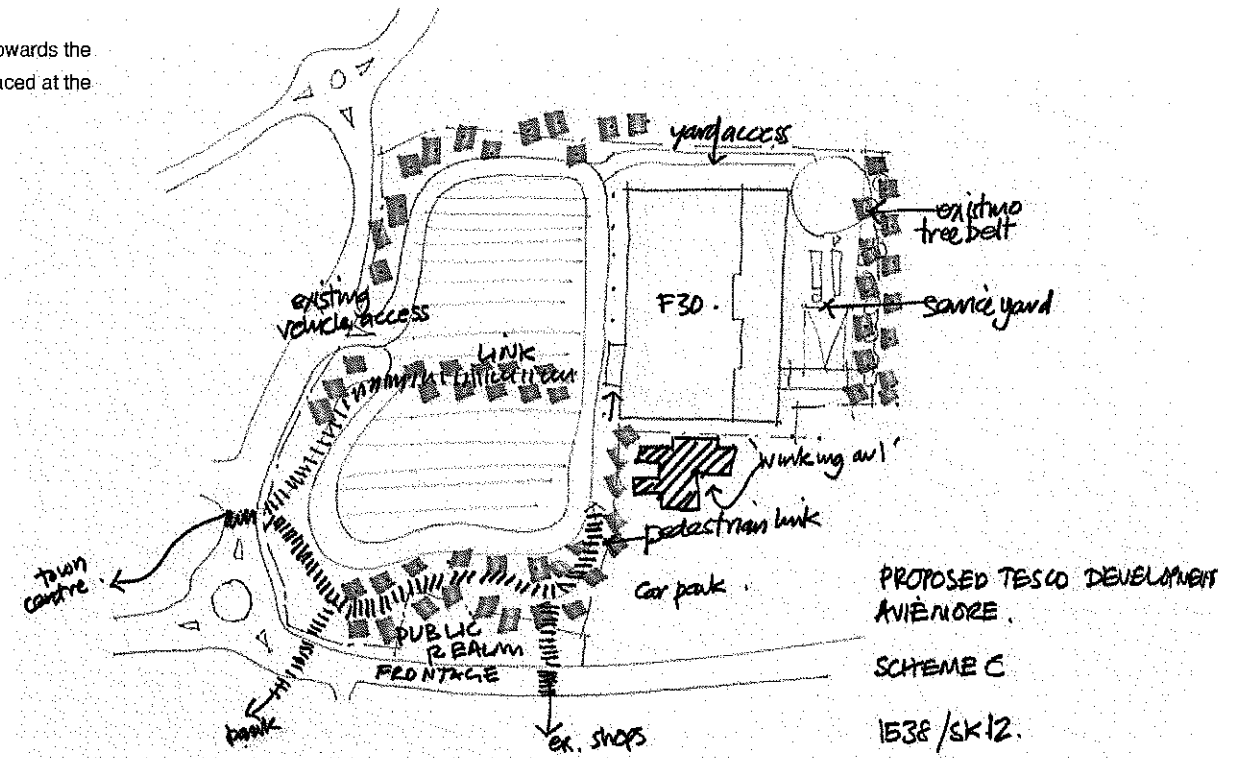 owards the
aced at the
yard access
existing
tree belt
existing
vehicle access
F30.
service yard
LINK
'winking owl'
pedestrian link
town
centre.
car park.
PUBLIC
REALM
FRONTAGE
park
ex. shops
PROPOSED TESCO DEVELOPMENT
AVIEMORE.
SCHEME C
1538/SK12.